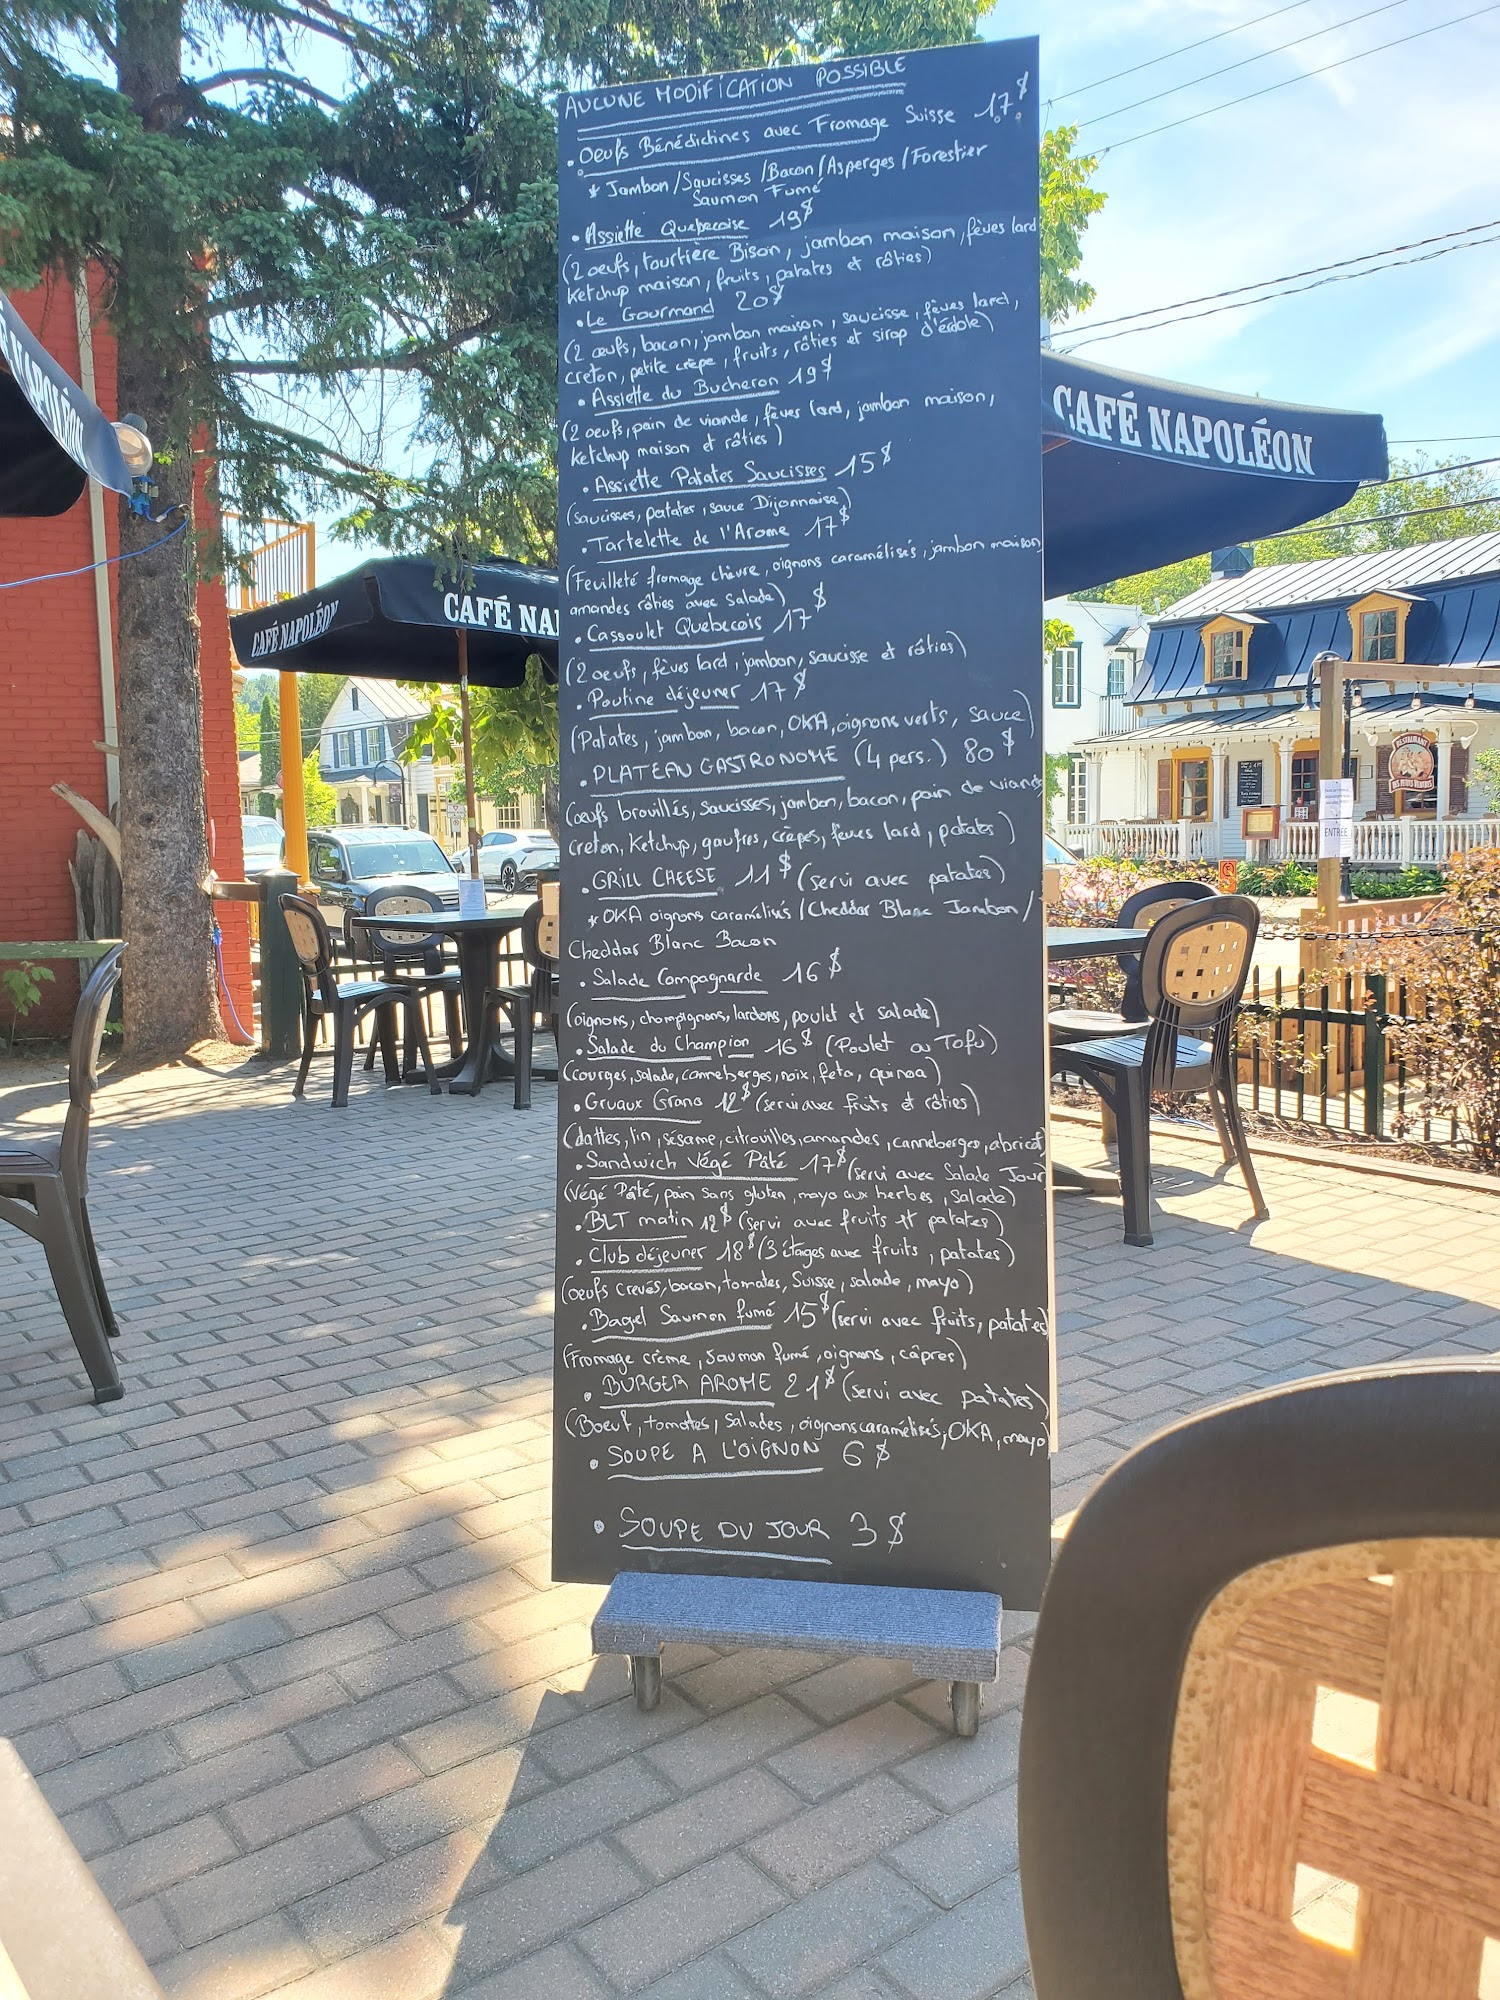 AUCUNE MODIFICATION POSSIBLE
• Oeufs Bénédictines avec Fromage Suisse 17$
* Jambon/Saucisses/Bacon/Asperges/Forestier
Saumon Fumé
• Assiette Quebecoise 19$
(2 oeufs, tourtière Bison, jambon maison, fèves lard
ketchup maison, fruits, patates et rôties)
• Le Gourmand 20$
(2 œufs, bacon, jambon maison, saucisse, fèves lard,
creton, petite crêpe, fruits, rôties et sirop d'érable)
• Assiette du Bucheron 19$
(2 oeufs, pain de viande, fèves lard, jambon maison,
ketchup maison et rôties)
• Assiette Patates Saucisses 15$
(saucisses, patates, sauce Dijonnaise)
• Tartelette de l'Arome 17$
(Feuilleté fromage chèvre, oignons caramélisés, jambon maison
amandes rôties avec salade)
• Cassoulet Quebecois 17$
(2 oeufs, fèves lard, jambon, saucisse et rôties)
• Poutine déjeuner 17$
(Patates, jambon, bacon, OKA, oignons verts, sauce)
• PLATEAU GASTRONOME (4 pers.) 80$
(œufs brouillés, saucisses, jambon, bacon, pain de viande,
creton, Ketchup, gaufres, crêpes, fèves lard, patates)
• GRILL CHEESE 11$ (servi avec patates)
* OKA oignons caramélisés / Cheddar Blanc Jambon /
Cheddar Blanc Bacon
• Salade Compagnarde 16$
(oignons, champignons, lardons, poulet et salade)
• Salade du Champion 16$ (Poulet ou Tofu)
(courges, salade, canneberges, noix, feta, quinoa)
• Gruaux Grano 12$ (servi avec fruits et rôties)
(dattes, lin, sésame, citrouilles, amandes, canneberges, abricot)
• Sandwich Végé Pâté 17$ (servi avec Salade Jour
(Végé Pâté, pain sans gluten, mayo aux herbes, salade)
• BLT matin 12$ (servi avec fruits et patates)
• Club déjeuner 18$ (3 étages avec fruits, patates)
(oeufs crevés, bacon, tomates, Suisse, salade, mayo)
• Bagel Saumon fumé 15$ (servi avec fruits, patates)
(Fromage crème, saumon fumé, oignons, câpres)
• BURGER AROME 21$ (servi avec patates)
(Boeuf, tomates, salades, oignons caramélisés, OKA, mayo)
• SOUPE A L'OIGNON 6$
• SOUPE DU JOUR 3$
CAFÉ NAPOLÉON
CAFÉ NAPOLÉON
CAFÉ NA
É NAPOLÉON
RESTAURANT
ENTRÉE